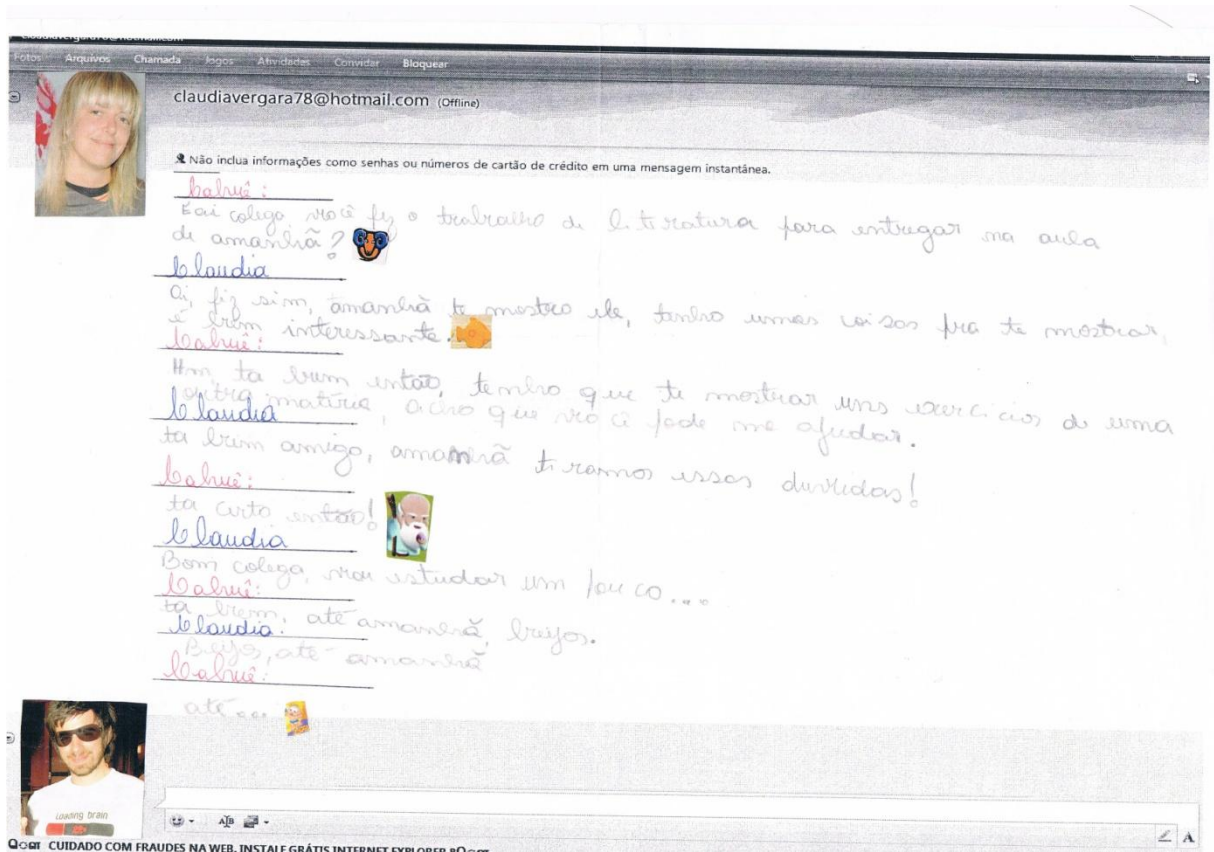 Fotos Arquivos Chamada Jogos Atividades Convidar Bloquear
claudiavergara78@hotmail.com (Offline)
Não inclua informações como senhas ou números de cartão de crédito em uma mensagem instantânea.
Cahuê:
Eai colega, você fez o trabralho de literatura para entregar na aula
de amanhã?
Claudia
Oi, fiz sim, amanhã te mostro ele, tenho umas coisas pra te mostrar,
é bem interessante.
Cahuê:
Hm, ta bem então, tenho que te mostrar uns exercícios de uma
outra matéria, acho que você pode me ajudar.
Claudia
ta bem amigo, amanhã tiramos essas duvidas!
Cahuê:
ta certo então!
Claudia
Bom colega, vou estudar um pouco...
Cahuê:
ta bem, até amanhã, beijos.
Claudia:
Beijos, até amanhã
Cahuê:
até...
Loading brain
CUIDADO COM FRAUDES NA WEB. INSTALE GRÁTIS INTERNET EXPLORER 8
A